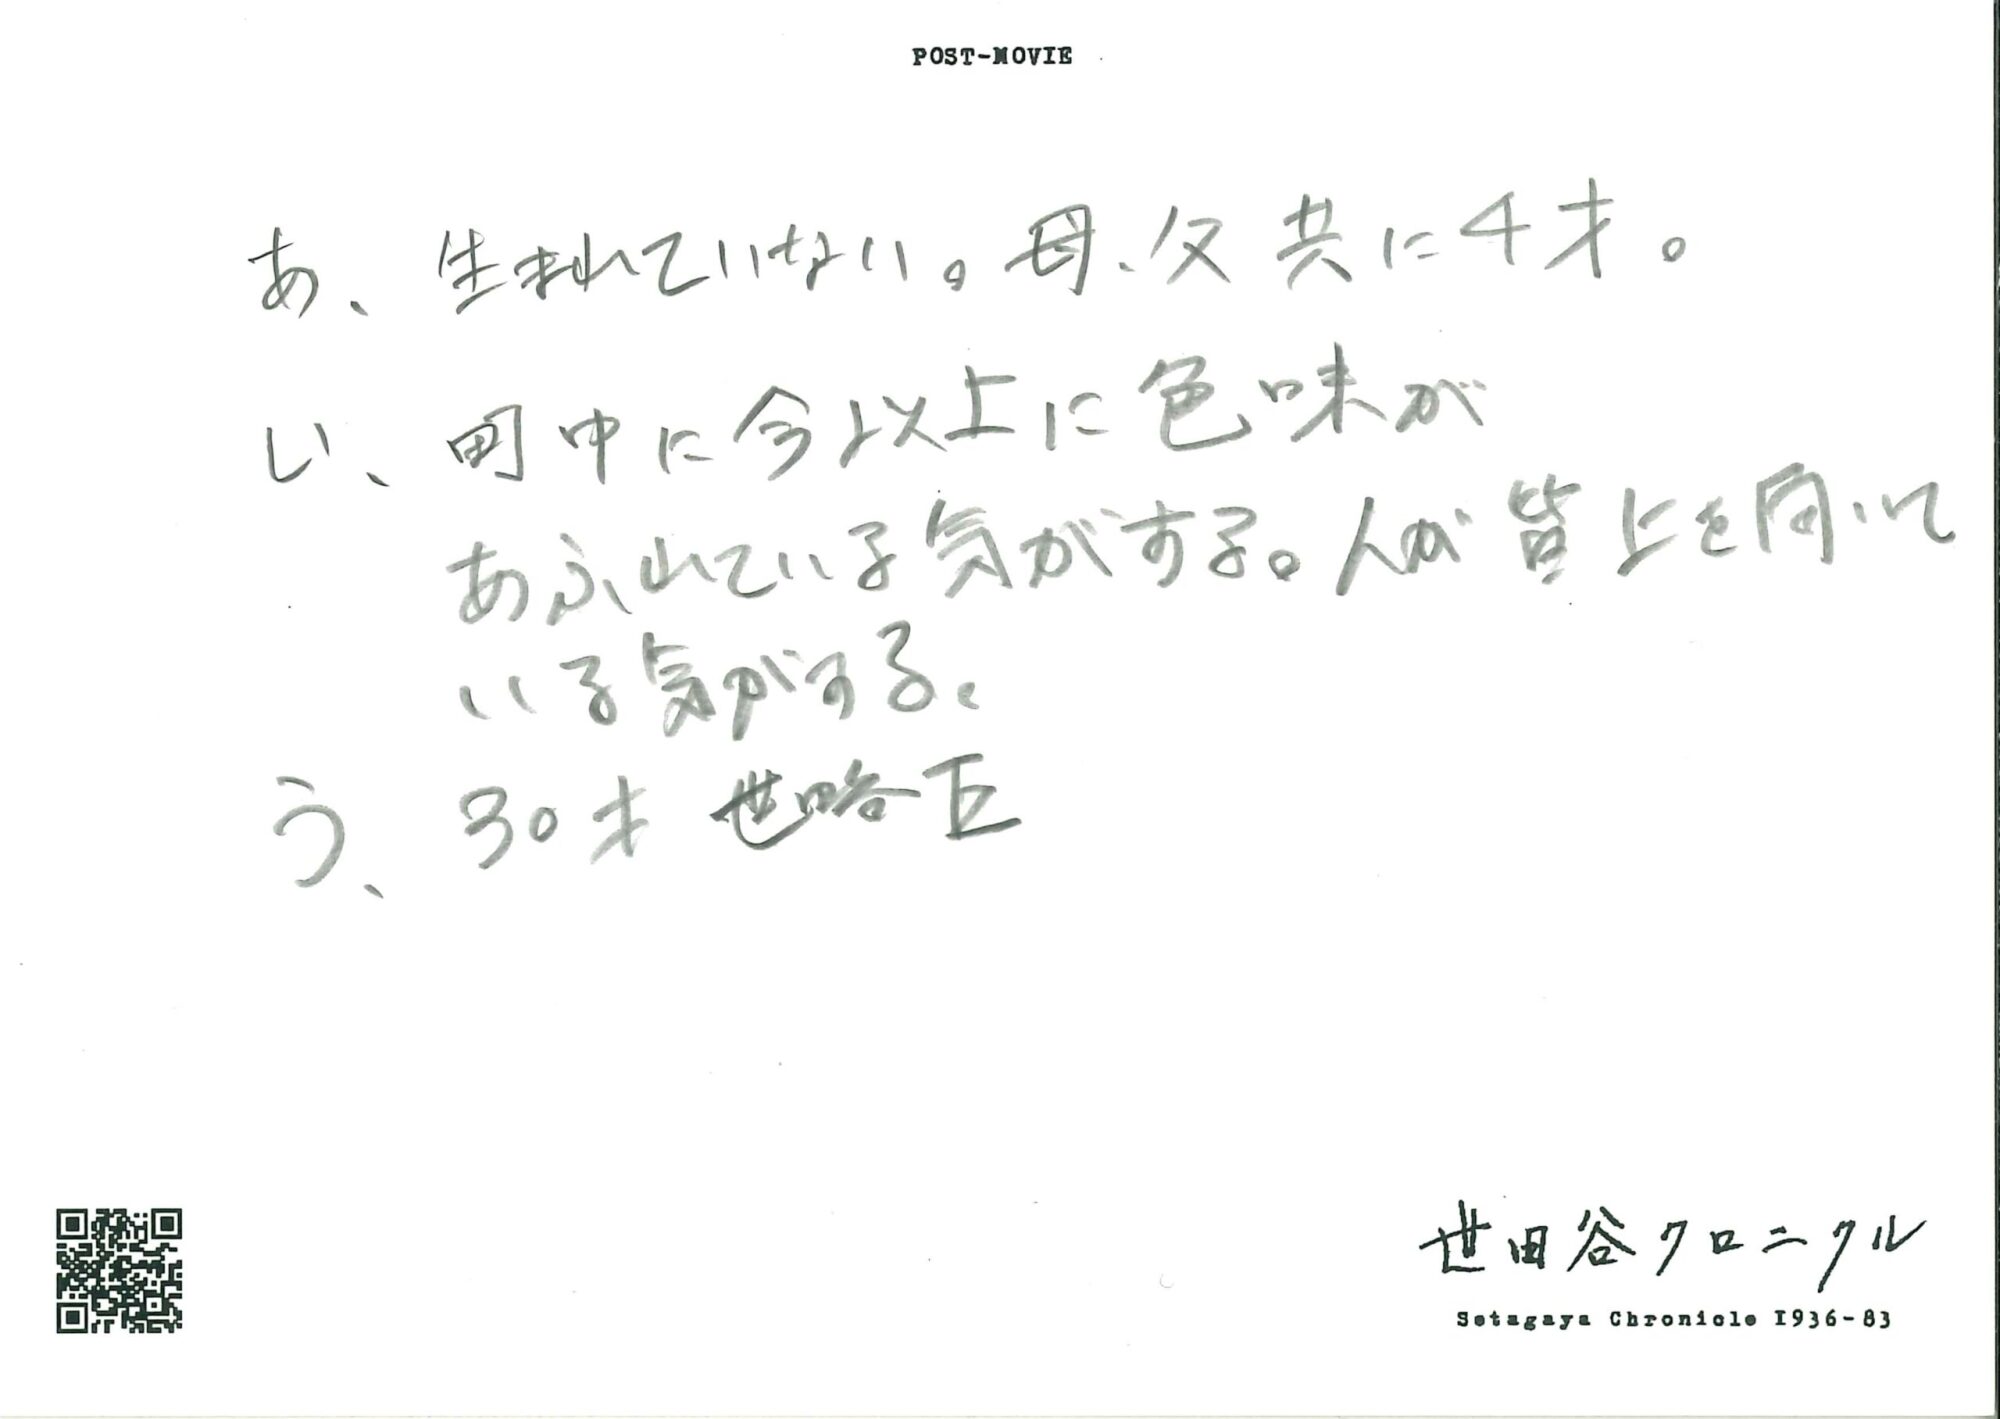 POST-MOVIE
あ、生まれていない。母、父共に4才。
い、町中に今以上に色味が
あふれている気がする。人が皆上を向いて
いる気がする。
う、30才 世田谷区
世田谷クロニクル
Setagaya Chronicle 1936-83